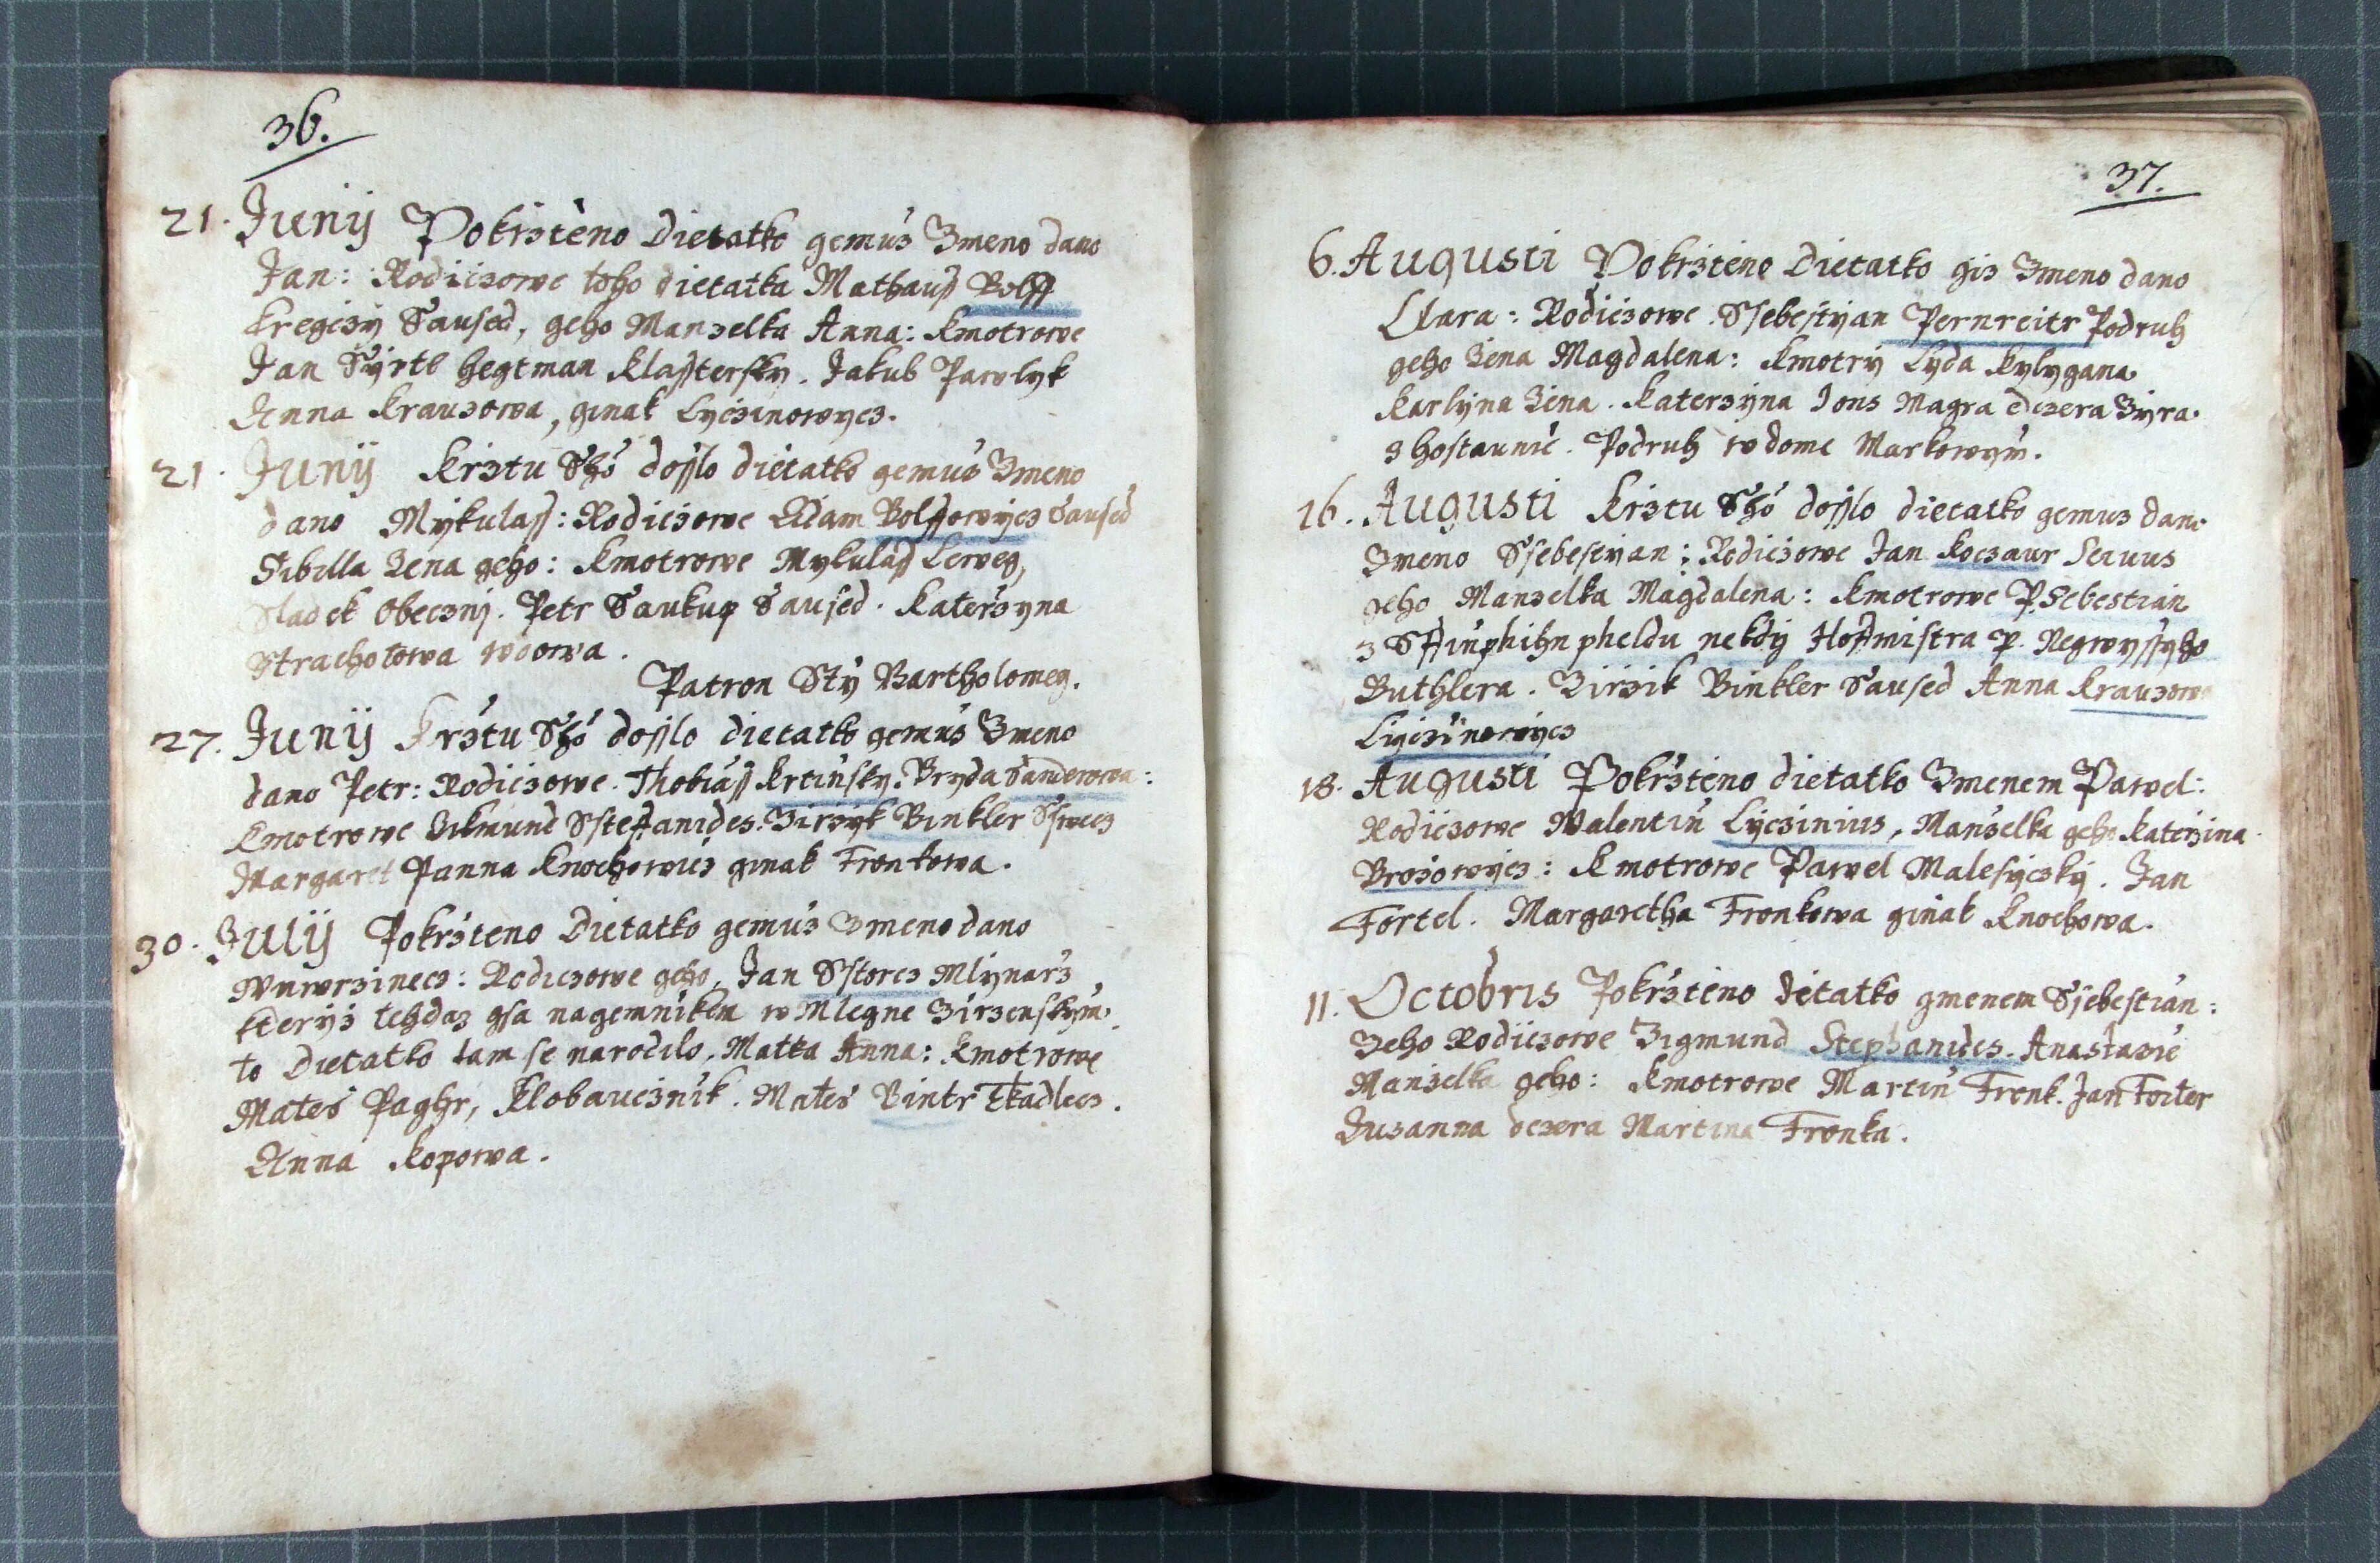 36.
21. Junij Pokrzteno Dietatko gemuz Zmeno dano
Jan: Rodiczowe toho dietatka Mathauß Bolff
Kregczy Saused, geho Manzelka Anna: Kmotrowe
Jan Syrtl hegtman Klasstersky. Jakub Pawlyk
Anna Krauzowa, ginak Lyczinowycz.
21. Junij Krztu Sho dosslo dietatko gemuz Zmeno
dano Mykulaß: Rodiczowe Adam Bolffowycz Saused
Sibilla Zena geho: Kmotrowe Mykulaß Lerweg,
Sladek Obeczni. Petr Saukup Saused. Katerzyna
Stracholowa wdowa.
Patron Sty Bartholomeg.
27. Junij Krztu Sho dosslo dietatko gemuz Zmeno
dano Petr: Rodiczowe. Thobiaß Krtinsky. Bryda Sanderowa:
Kmotrowe Zikmund Ssteffanides. Zirzyk Binkler Sswecz
Margaret Panna Knochowicz ginak Fronkowa.
30. Julij Pokrzteno Dietatko gemuz Zmeno dano
Wawrzinecz: Rodiczowe geho, Jan Sstorcz Mlynarz
kteryz tehdaz gsa nagemnikem w Mlegne Zirzenskym.
to Dietatko tam se narodilo. Matka Anna: Kmotrowe
Mates Paghr, Klobaucznik. Mates Bintr Tkadlecz.
Anna Kopowa.
37.
6. Augusti Pokrzteno Dietatko giz Zmeno dano
Clara: Rodiczowe. Ssebestyan Pernreitr Podruh
geho Zena Magdalena: Kmotry Lyda Kylygana
Karlyna Zena. Katerzyna Jons Magra dczera Zyra.
z hostaunie. Podruh w dome Markowym.
16. Augusti Krztu Sho dosslo dietatko gemuz dano
Zmeno Ssebestyan: Rodiczowe Jan Koczaur Seruus
geho Manzelka Magdalena: Kmotrowe P. Sebestian
z Sftinphihn pheldu nekdy Hoffmistra p. Negwyssyho
Buthlera. Zirzik Binkler Saused Anna Krauzowa
Liyczinowycz
18. Augusti Pokrzteno dietatko Zmenem Pawel:
Rodiczowe Walentin Lyczinius, Manzelka geho Katerzina
Brozowycz: Kmotrowe Pawel Malesyczky. Jan
Fortel. Margaretha Fronkowa ginak Knochowa.
11. Octobris Pokrzteno dietatko gmenem Ssebestian:
Zeho Rodiczowe Zigmund Stephanides. Anastazie
Manzelka geho: Kmotrowe Martin Fronk. Jan Foiter
Zuzanna dczera Martina Fronka.